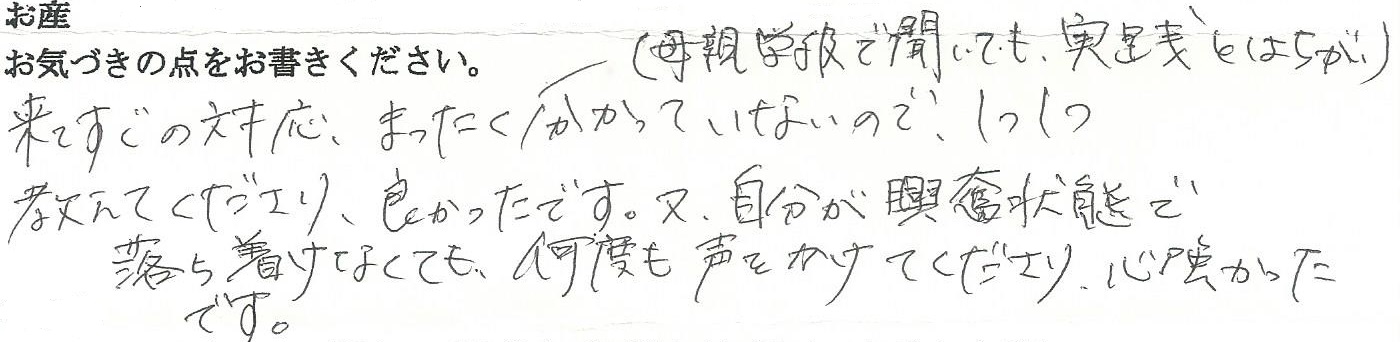 お産
お気づきの点をお書きください。
(母親学級で聞いても、実践とはちがい)
来てすぐの対応、まったく分かっていけないので、1つ1つ
教えてくださり、良かったです。又、自分が興奮状態で
落ち着けなくても、何度も声をかけてくださり、心強かった
です。